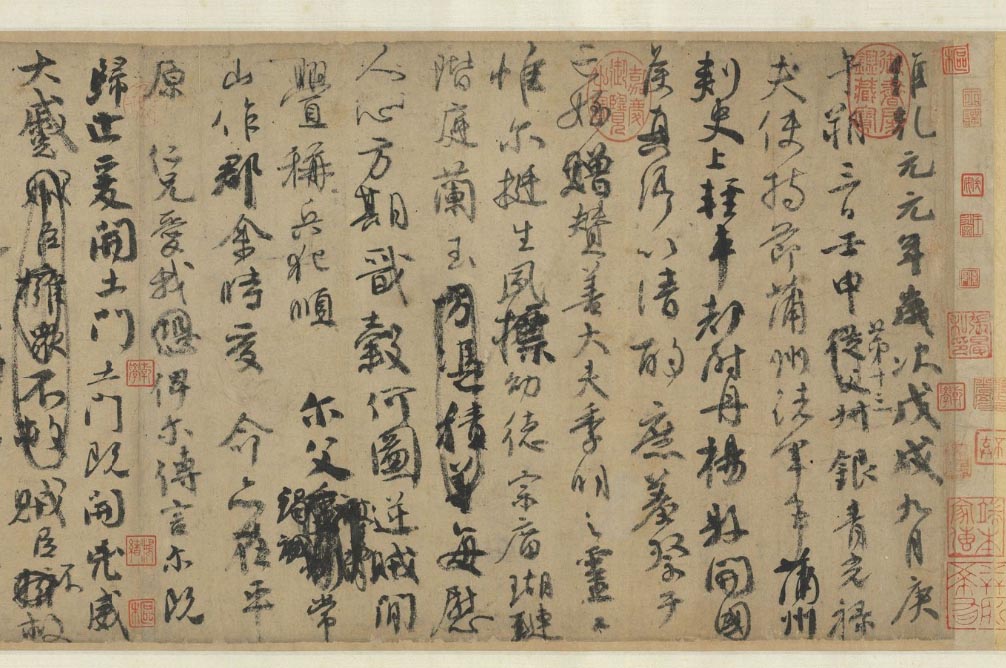 維乾元元年歲次戊戌九月庚
午朔三日壬申第十三從父叔銀青光祿
夫使持節蒲州諸軍事蒲州
刺史上輕車都尉丹楊縣開國
侯真卿以清酌庶羞祭于
亡姪贈贊善大夫季明之靈曰
惟爾挺生夙標幼德宗廟瑚璉
階庭蘭玉方憑積善每慰
人心方期戩穀何圖逆賊間
釁稱兵犯順爾父竭誠常
山作郡余時受命亦在平
原仁兄愛我恐俾爾傳言爾既
歸止爰開土門土門既開凶威
大蹙賊臣擁眾不救賊臣不救
御書房鑑藏寶
嘉慶御覽之寶